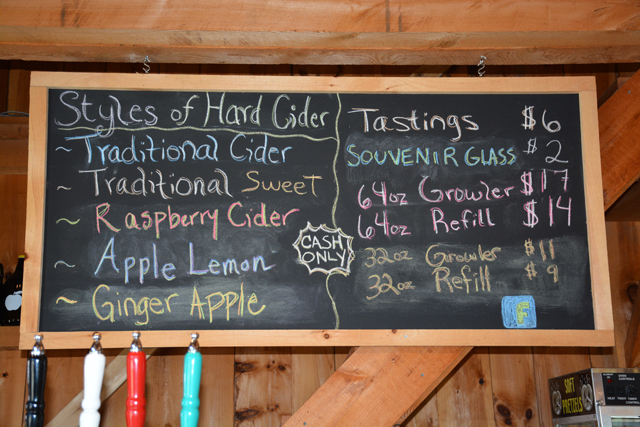 Styles of Hard Cider
~ Traditional Cider
~ Traditional Sweet
~ Raspberry Cider
~ Apple Lemon
~ Ginger Apple
CASH
ONLY
Tastings $6
SOUVENIR GLASS $2
64oz Growler $17
64oz Refill $14
32oz Growler $11
32oz Refill $9
F
SOFT
PRETZELS